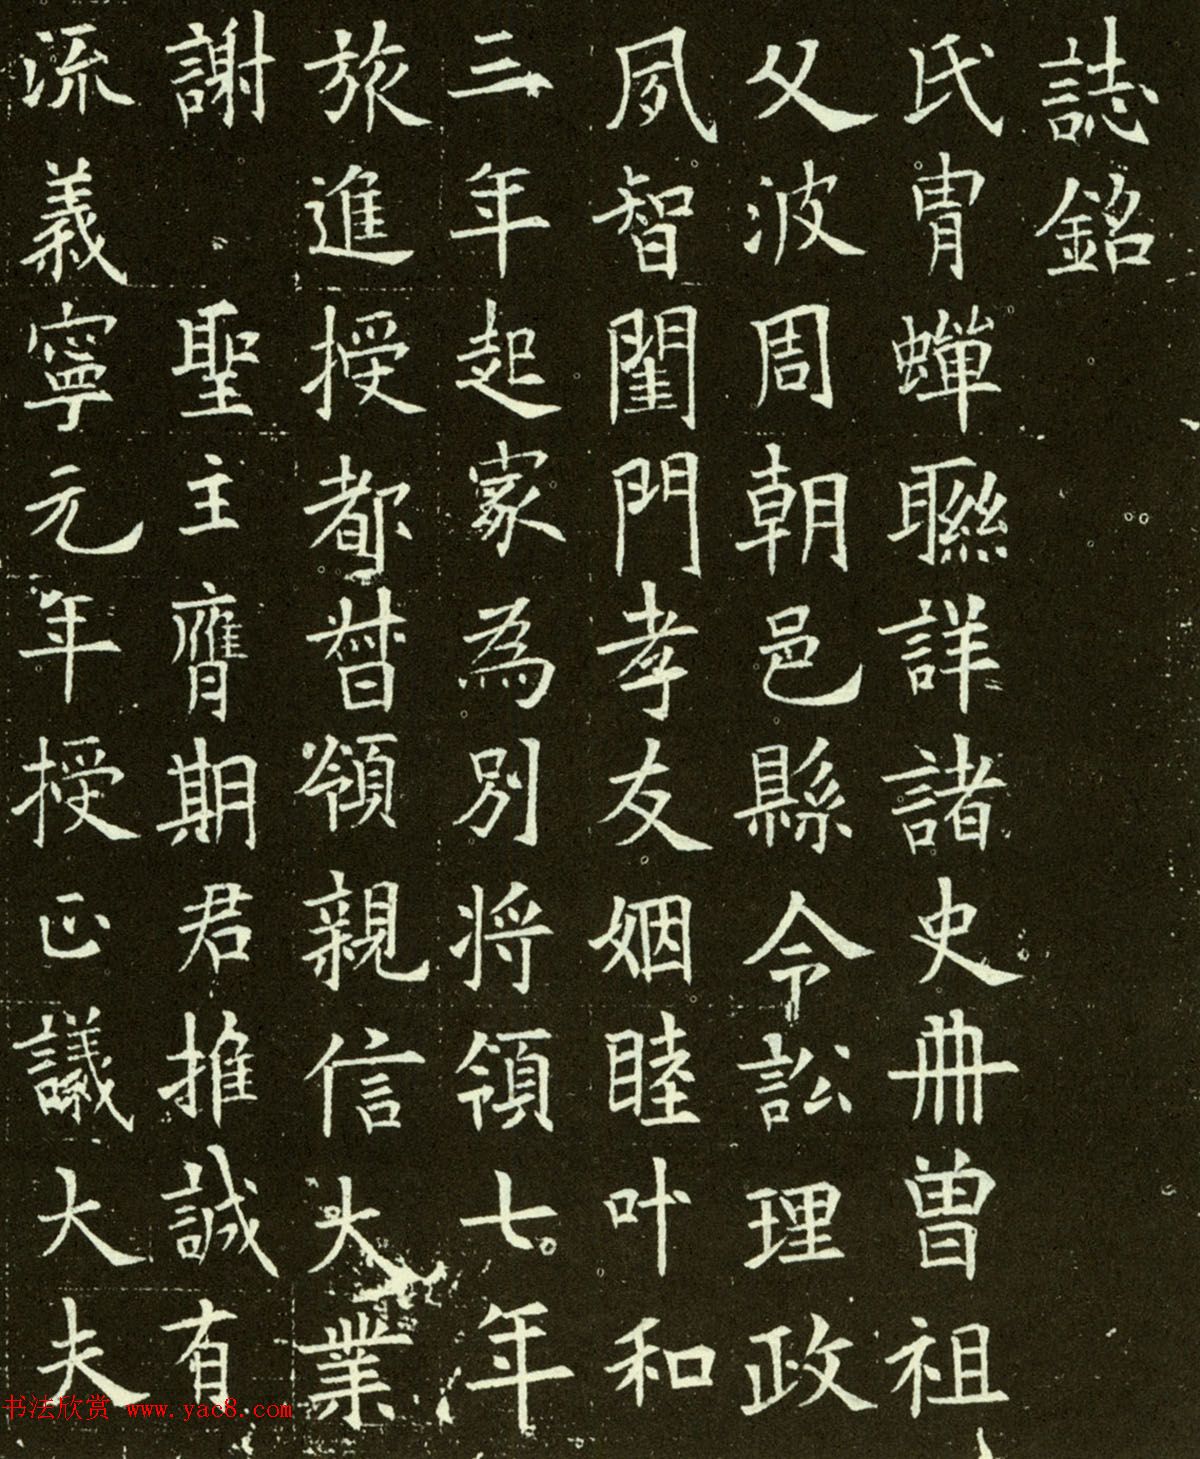 誌銘
氏冑蟬聯詳諸史冊曾祖
父波周朝邑縣令訟理政
夙智閨門孝友姻睦叶和
三年起家為別將領七年
旅進授都督領親信大業
謝 聖主膺期君推誠有
流義寧元年授正議大夫
书法欣赏 www.yac8.com